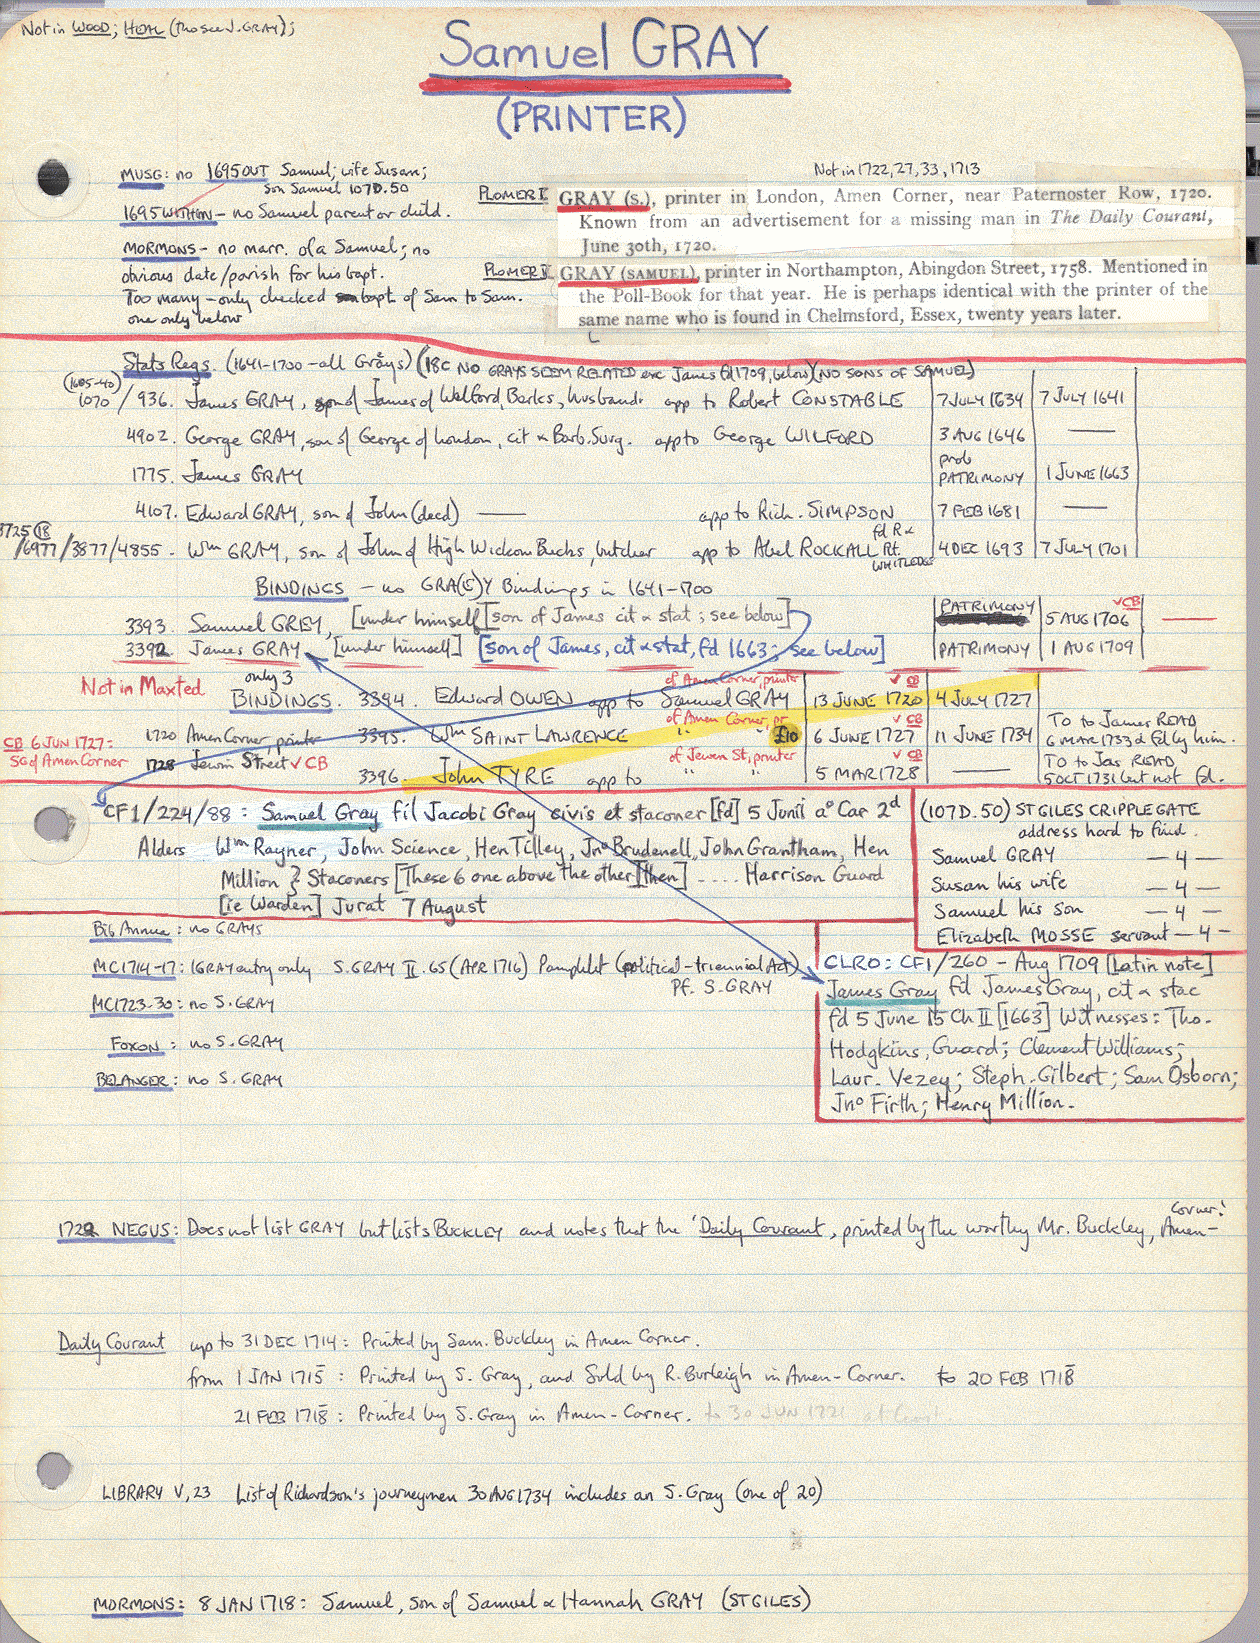 Not in WOOD; HEAL (tho see J. GRAY);
Samuel GRAY
(PRINTER)
MUSG: no 1695 OUT Samuel; wife Susan;
son Samuel 107D.50
1695 WITHIN - no Samuel parent or child.
MORMONS - no marr. of a Samuel; no
obvious date/parish for his bapt.
Too many - only checked bapt of Sam to Sam.
one only below
Not in 1722, 27, 33, 1713
PLOMER I GRAY (S.), printer in London, Amen Corner, near Paternoster Row, 1720.
Known from an advertisement for a missing man in The Daily Courant,
June 30th, 1720.
PLOMER II GRAY (SAMUEL), printer in Northampton, Abingdon Street, 1758. Mentioned in
the Poll-Book for that year. He is perhaps identical with the printer of the
same name who is found in Chelmsford, Essex, twenty years later.
Stats Regs. (1641-1700 - all Grays) (18C NO GRAYS SEEM RELATED exc James fd 1709, below) (NO SONS OF SAMUEL)
(1605-40)
1070 / 936. James GRAY, son of James of Welford, Berks, husband: app to Robert CONSTABLE 7 JULY 1634 7 JULY 1641
4902. George GRAY, son of George of London, cit & Barb. Surg. app to George WILFORD 3 AUG 1646 —
1775. James GRAY prob PATRIMONY 1 JUNE 1663
4107. Edward GRAY, son of John (decd) — app to Rich. SIMPSON 7 FEB 1681 —
3725 (18)
/6977/3877/4855. Wm GRAY, son of John of High Wickom Bucks, butcher app to Abel ROCKALL fd R & Rt. WHITLEDGE 4 DEC 1693 7 JULY 1701
BINDINGS - no GRA(E)Y Bindings in 1641-1700
3393. Samuel GREY, [under himself] [son of James cit & stat; see below] PATRIMONY 5 AUG 1706 √CB —
3392 James GRAY [under himself] [son of James, cit & stat, fd 1663; see below] PATRIMONY 1 AUG 1709
Not in Maxted
only 3
BINDINGS. 3394. Edward OWEN app to Samuel GRAY of Amen Corner, printer 13 JUNE 1720 √CB 4 JULY 1727
1720 Amen Corner, printer 3395. Wm SAINT LAWRENCE " " of Amen Corner, pr £10 6 JUNE 1727 √CB 11 JUNE 1734 TO to James READ
6 MAR 1733 & fd by him.
CB 6 JUN 1727:
SG of Amen Corner
1728 Jewin Street √CB
3396. John TYRE app to " " of Jewen St, printer 5 MAR 1728 √CB — TO to Jas READ
5 OCT 1731 but not fd.
CF1/224/88: Samuel Gray fil Jacobi Gray civis et staconer [fd] 5 Junii a° Car 2d
Alders Wm Rayner, John Science, Hen Tilley, Jno Brudenell, John Grantham, Hen
Million } Staconers [These 6 one above the other] [then] .... Harrison Guard
[ie Warden] Jurat 7 August
(107D.50) ST GILES CRIPPLEGATE
address hard to find.
Samuel GRAY — 4 —
Susan his wife — 4 —
Samuel his son — 4 —
Elizabeth MOSSE servant — 4 —
Big Annua: no GRAYS
MC1714-17: 1 GRAY entry only S. GRAY II. 65 (APR 1716) Pamphlet (political - triennial Act)
Pf. S. GRAY
MC1723-30: no S. GRAY
FOXON: no S. GRAY
BELANGER: no S. GRAY
CLRO: CF1/260 - Aug 1709 [Latin note]
James Gray fd James Gray, cit & stac
fd 5 June 15 Ch II [1663] Witnesses: Tho.
Hodgkins, Guard; Clement Williams;
Laur. Vezey; Steph. Gilbert; Sam Osborn;
Jno Firth; Henry Million.
1722 NEGUS: Does not list GRAY but lists BUCKLEY and notes that the 'Daily Courant, printed by the worthy Mr. Buckley, Amen-
Corner'
Daily Courant up to 31 DEC 1714: Printed by Sam. Buckley in Amen Corner.
from 1 JAN 1715: Printed by S. Gray, and Sold by R. Burleigh in Amen-Corner. to 20 FEB 1718
21 FEB 1718: Printed by S. Gray in Amen-Corner. to 30 JUN 1721 at least
LIBRARY V, 23 List of Richardson's journeymen 30 AUG 1734 includes an S. Gray (one of 20)
MORMONS: 8 JAN 1718: Samuel, son of Samuel & Hannah GRAY (ST GILES)